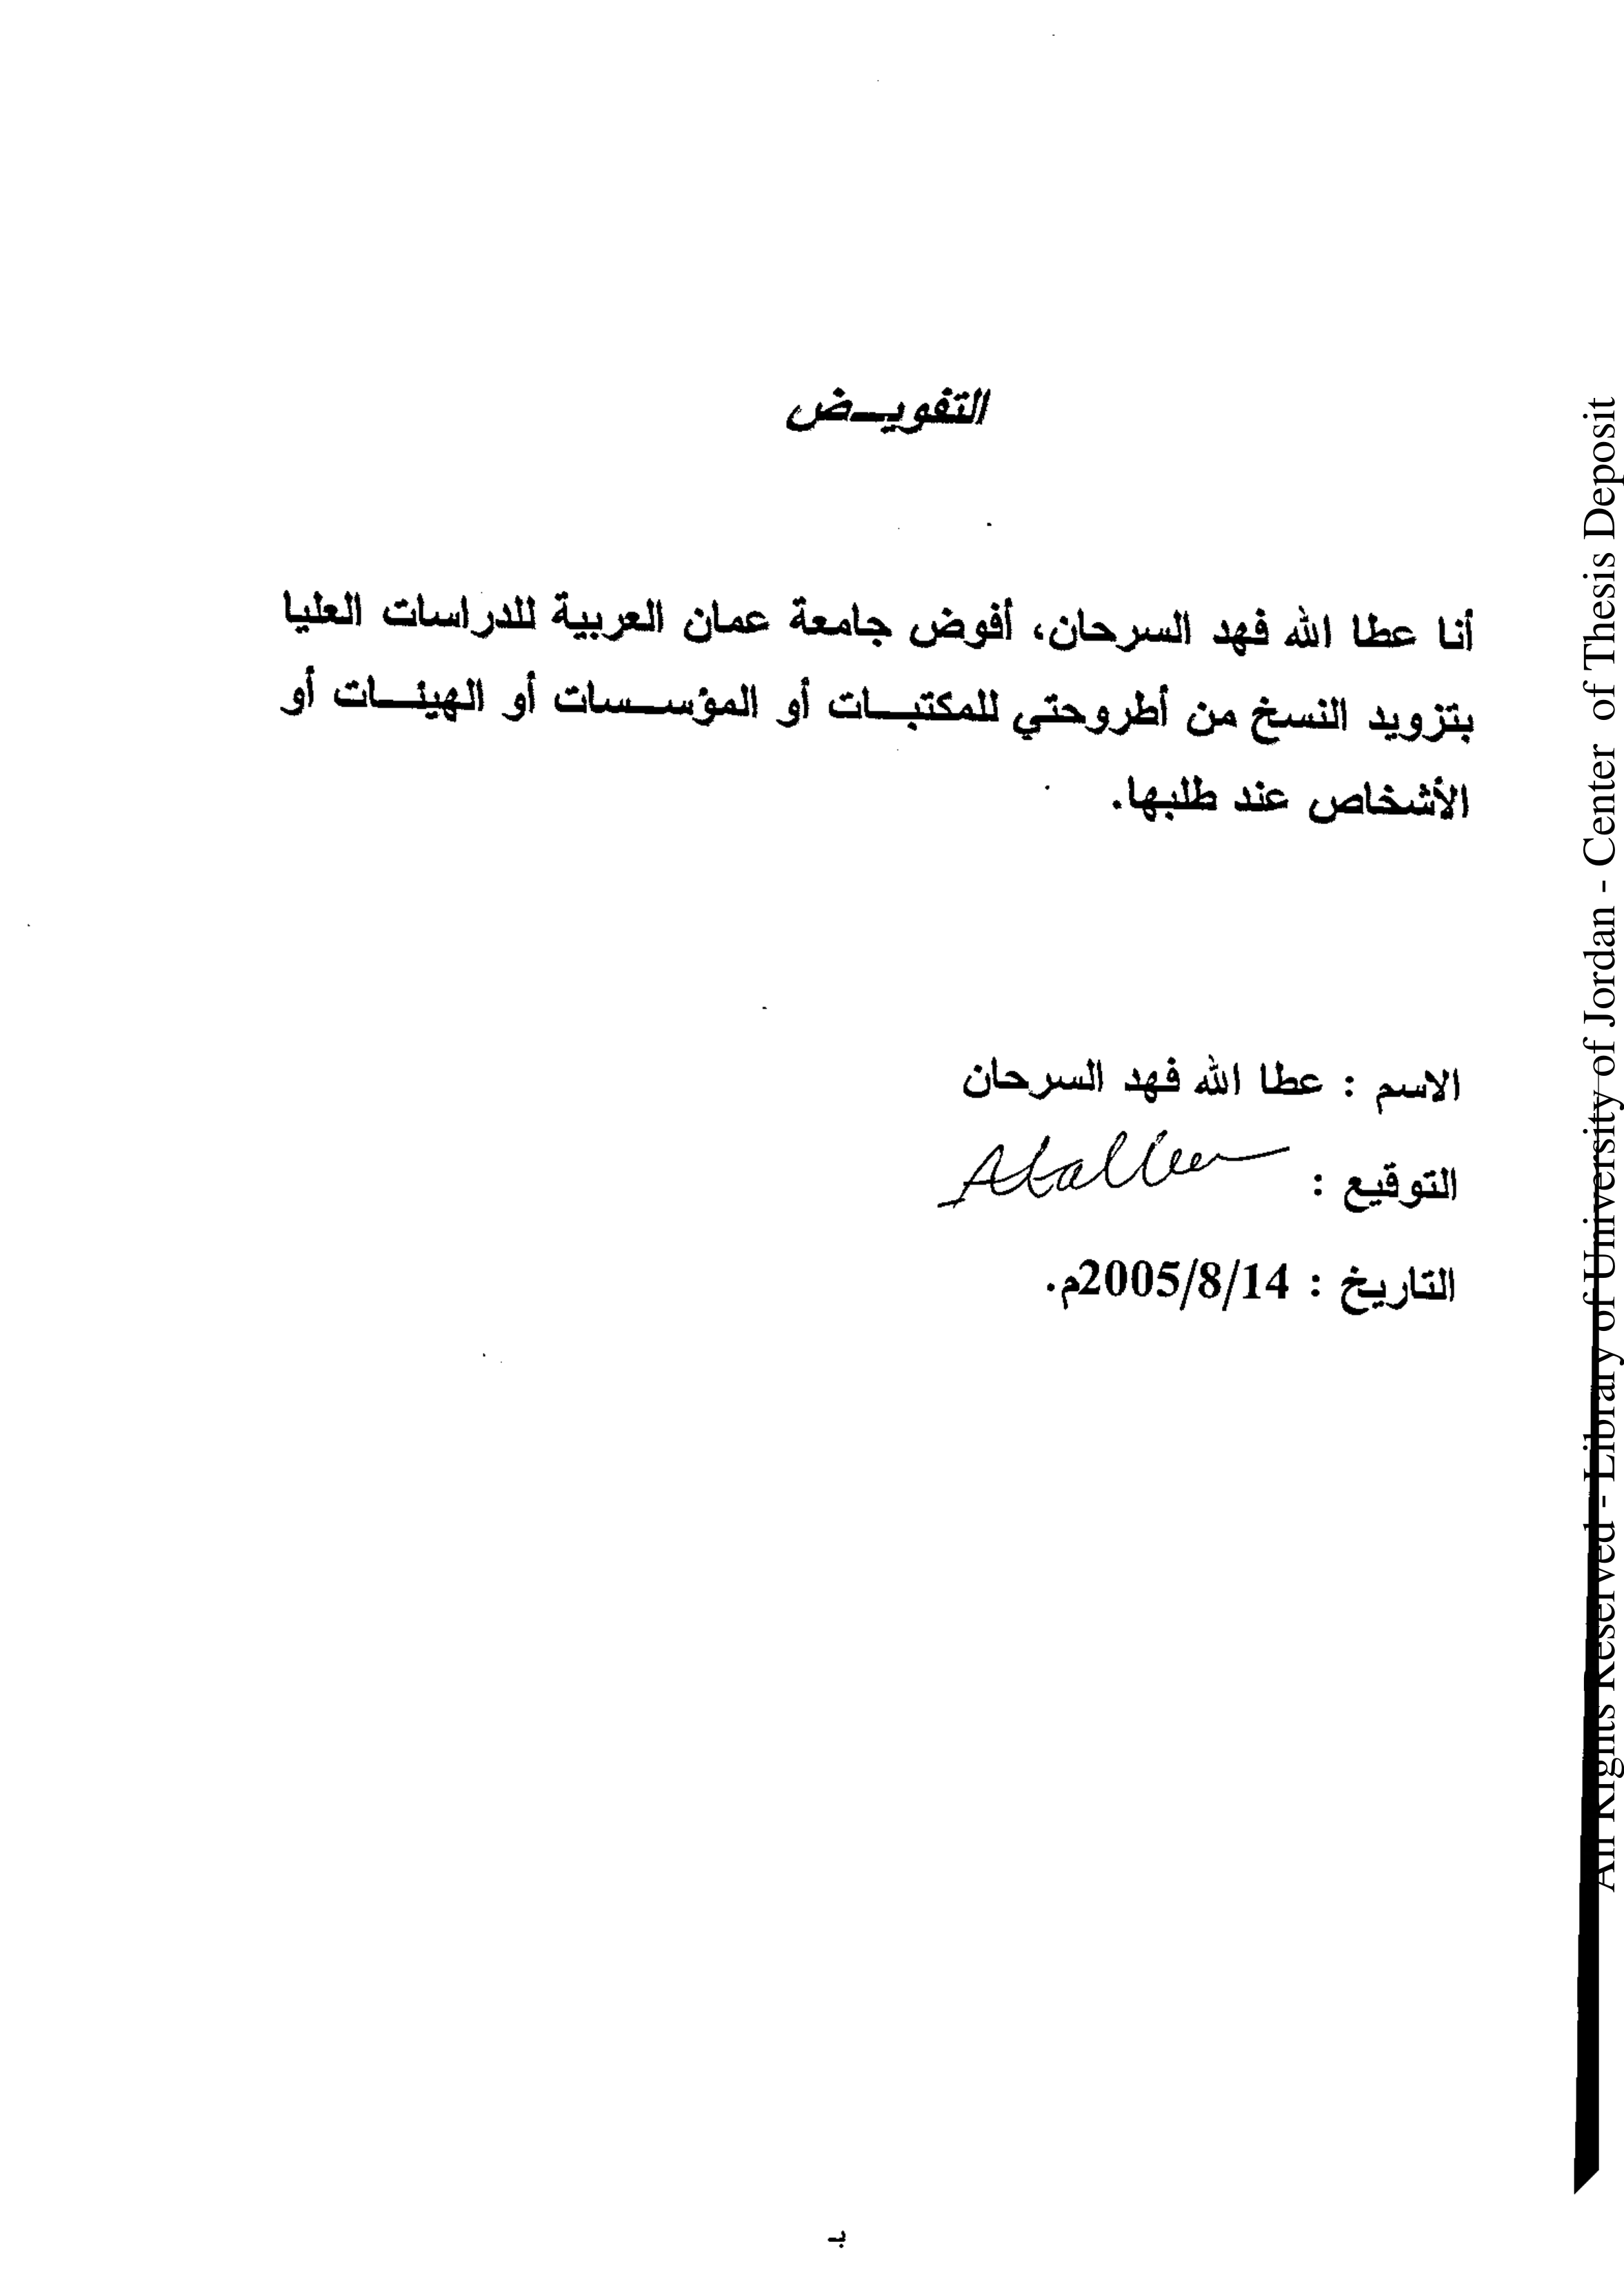 التفويـض
أنا عطا الله فهد السرحان، أفوض جامعة عمان العربية للدراسات العليا
بتزويد النسخ من أطروحتي للمكتبـات أو المؤسـسات أو الهيئـات أو
الأشخاص عند طلبها.
الاسم : عطا الله فهد السرحان
التوقيع :
التاريخ : 2005/8/14م.
ب
All Rights Reserved - Library of University of Jordan - Center of Thesis Deposit